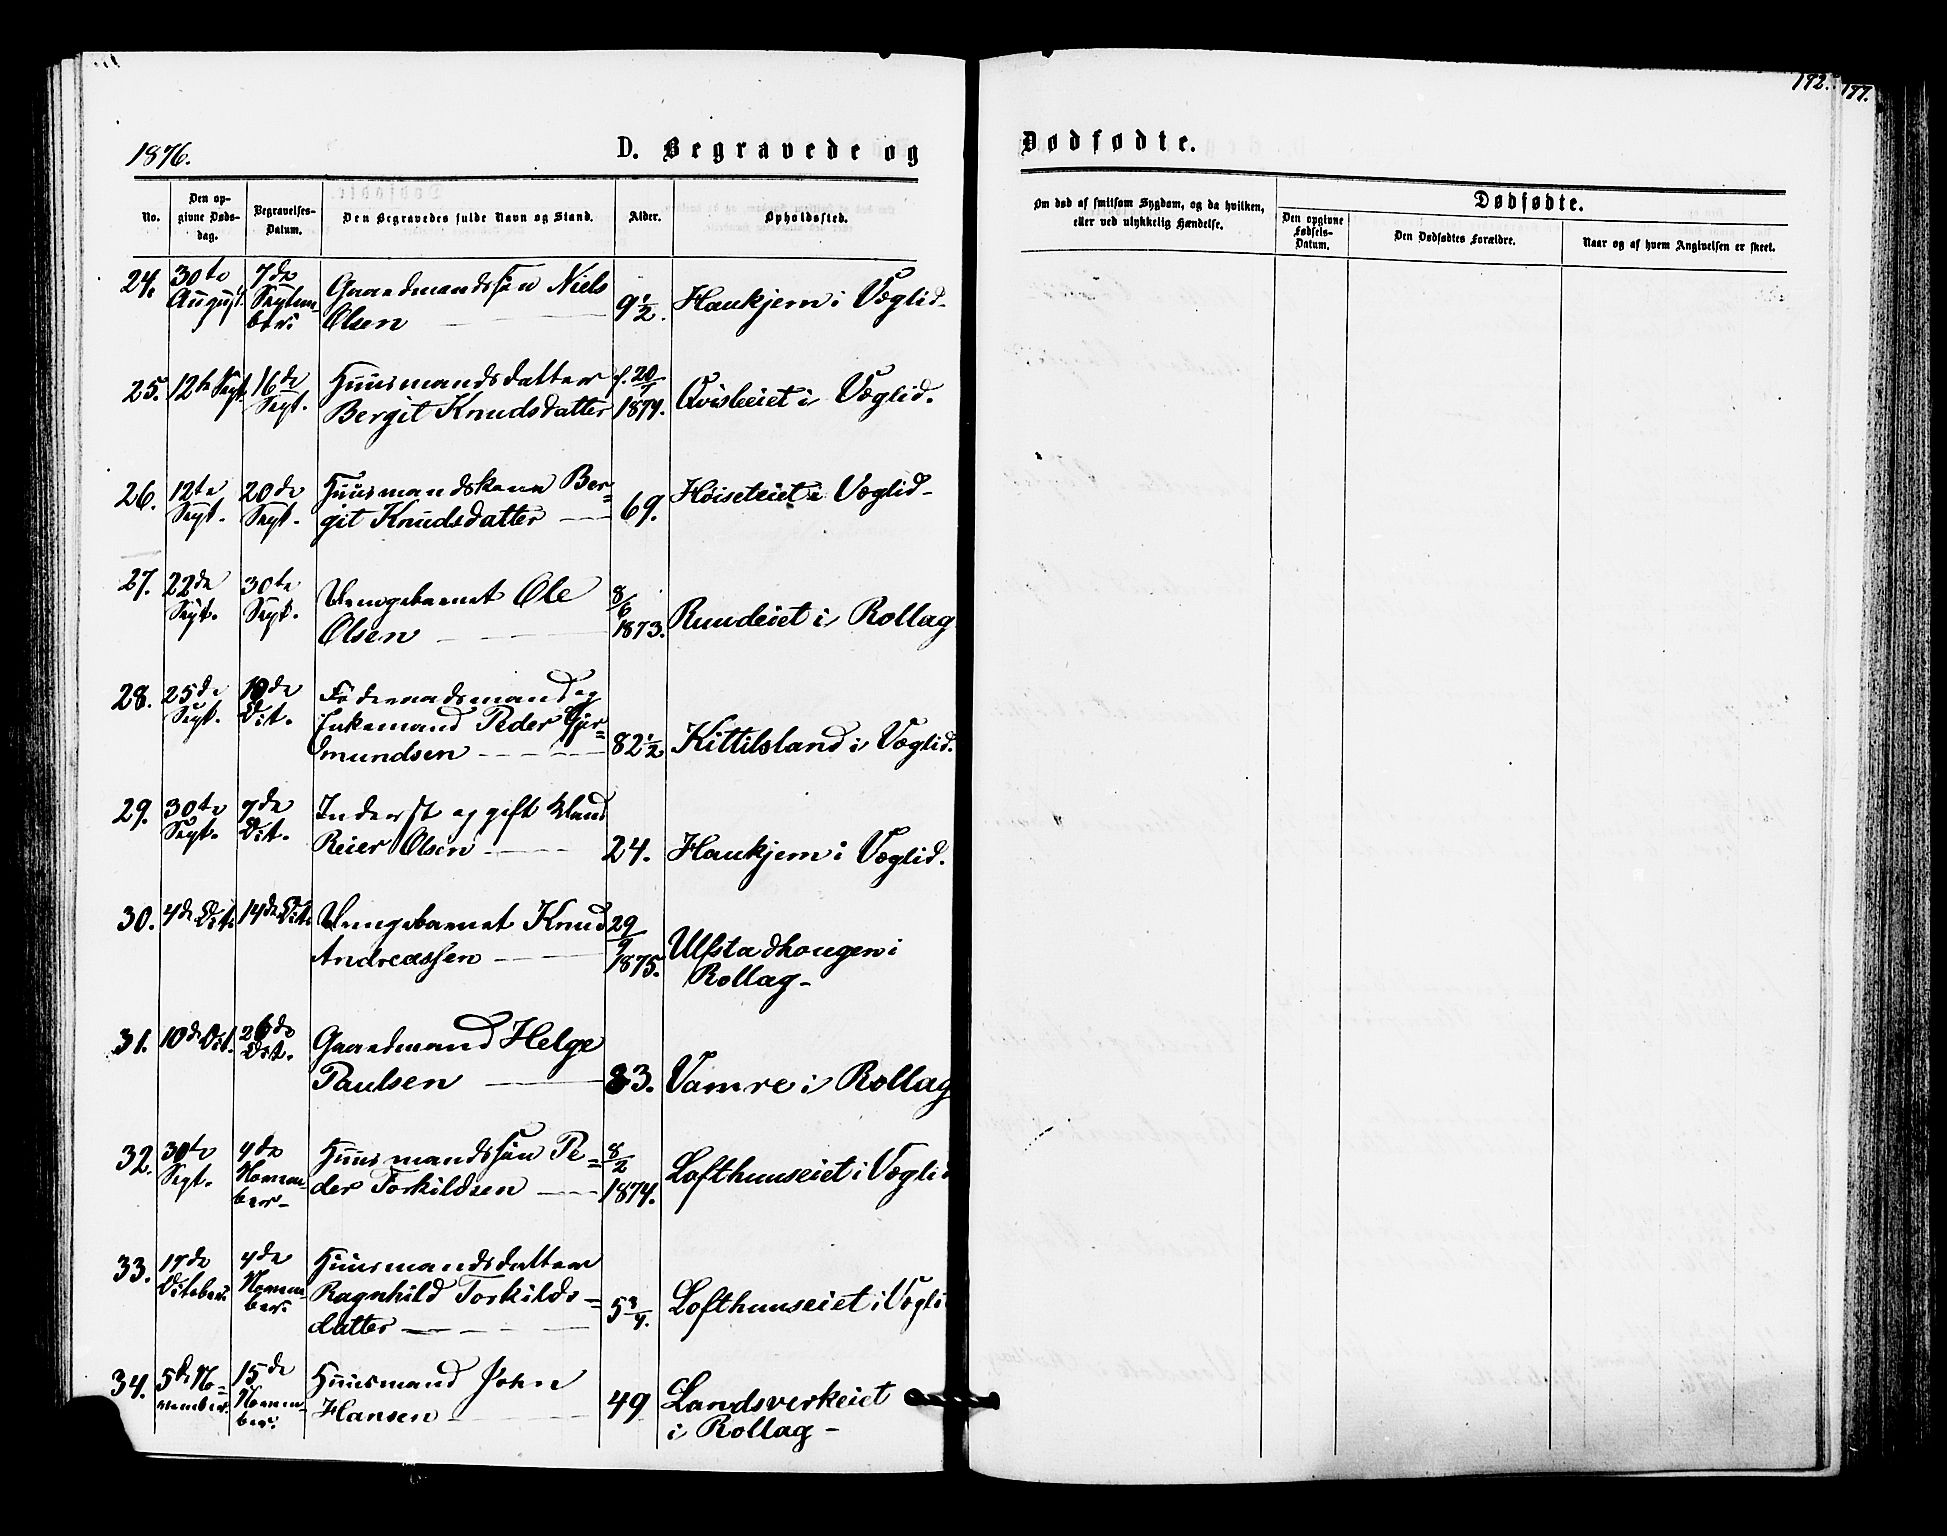 192. 177.
1876. D. Begravede og Dødfødte.
No. Den opgivne Dødsdag. Begravelses-Datum. Den Begravedes fulde Navn og Stand. Alder. Opholdssted.
Om død af smitsom Sygdom, og da hvilken, eller ved ulykkelig Hændelse. Dødfødte. Den opgivne Fødsels-Datum. Den Dødfødtes Forældre. Naar og af hvem Angivelsen er skeet.
24. 30te August. 7de Septem-ber. Gaardmandssøn Niels Olsen 9 1/2. Haukjem i Væglid.
25. 12te Sept. 16de Sept. Huusmandsdatter Bergit Knudsdatter f. 20/7 1874. Qvisleeiet i Væglid.
26. 12te Sept. 20de Sept. Huusmandskone Ber=git Knudsdatter 69. Høiseteiet i Væglid
27. 22de Sept. 30te Sept. Uængebarnet Ole Olsen 8/6 1873. Rundeiet i Rollag
28. 25de Sept. 10de Oct. Føderaadsmand og Enkemand Peder Gjer=mundsen 82 1/2 Kittilsland i Væglid.
29. 30te Sept. 7de Oct. Inderst og gift Mand Reier Olsen 24. Haukjem i Væglid.
30. 4de Oct. 14de Oct. Uængebarnet Knud Andreassen 29/9 1875. Ulfstadhougen i Rollag
31. 10de Oct. 26de Oct. Gaardmand Helge Paulsen 83. Vamre i Rollag
32. 30te Sept. 4de Novem-ber Huusmandssøn Pe=der Torkildsen 8/2 1874. Lofthuuseiet i Væglid
33. 17de October. 4de Novem-ber. Huusmandsdatter Ragnhild Torkilds=datter 5 3/4. Lofthuuseiet i Vægli
34. 5te No=vember. 15de Novem-ber. Huusmand John Hansen 49 Landsverkeiet i Rollag